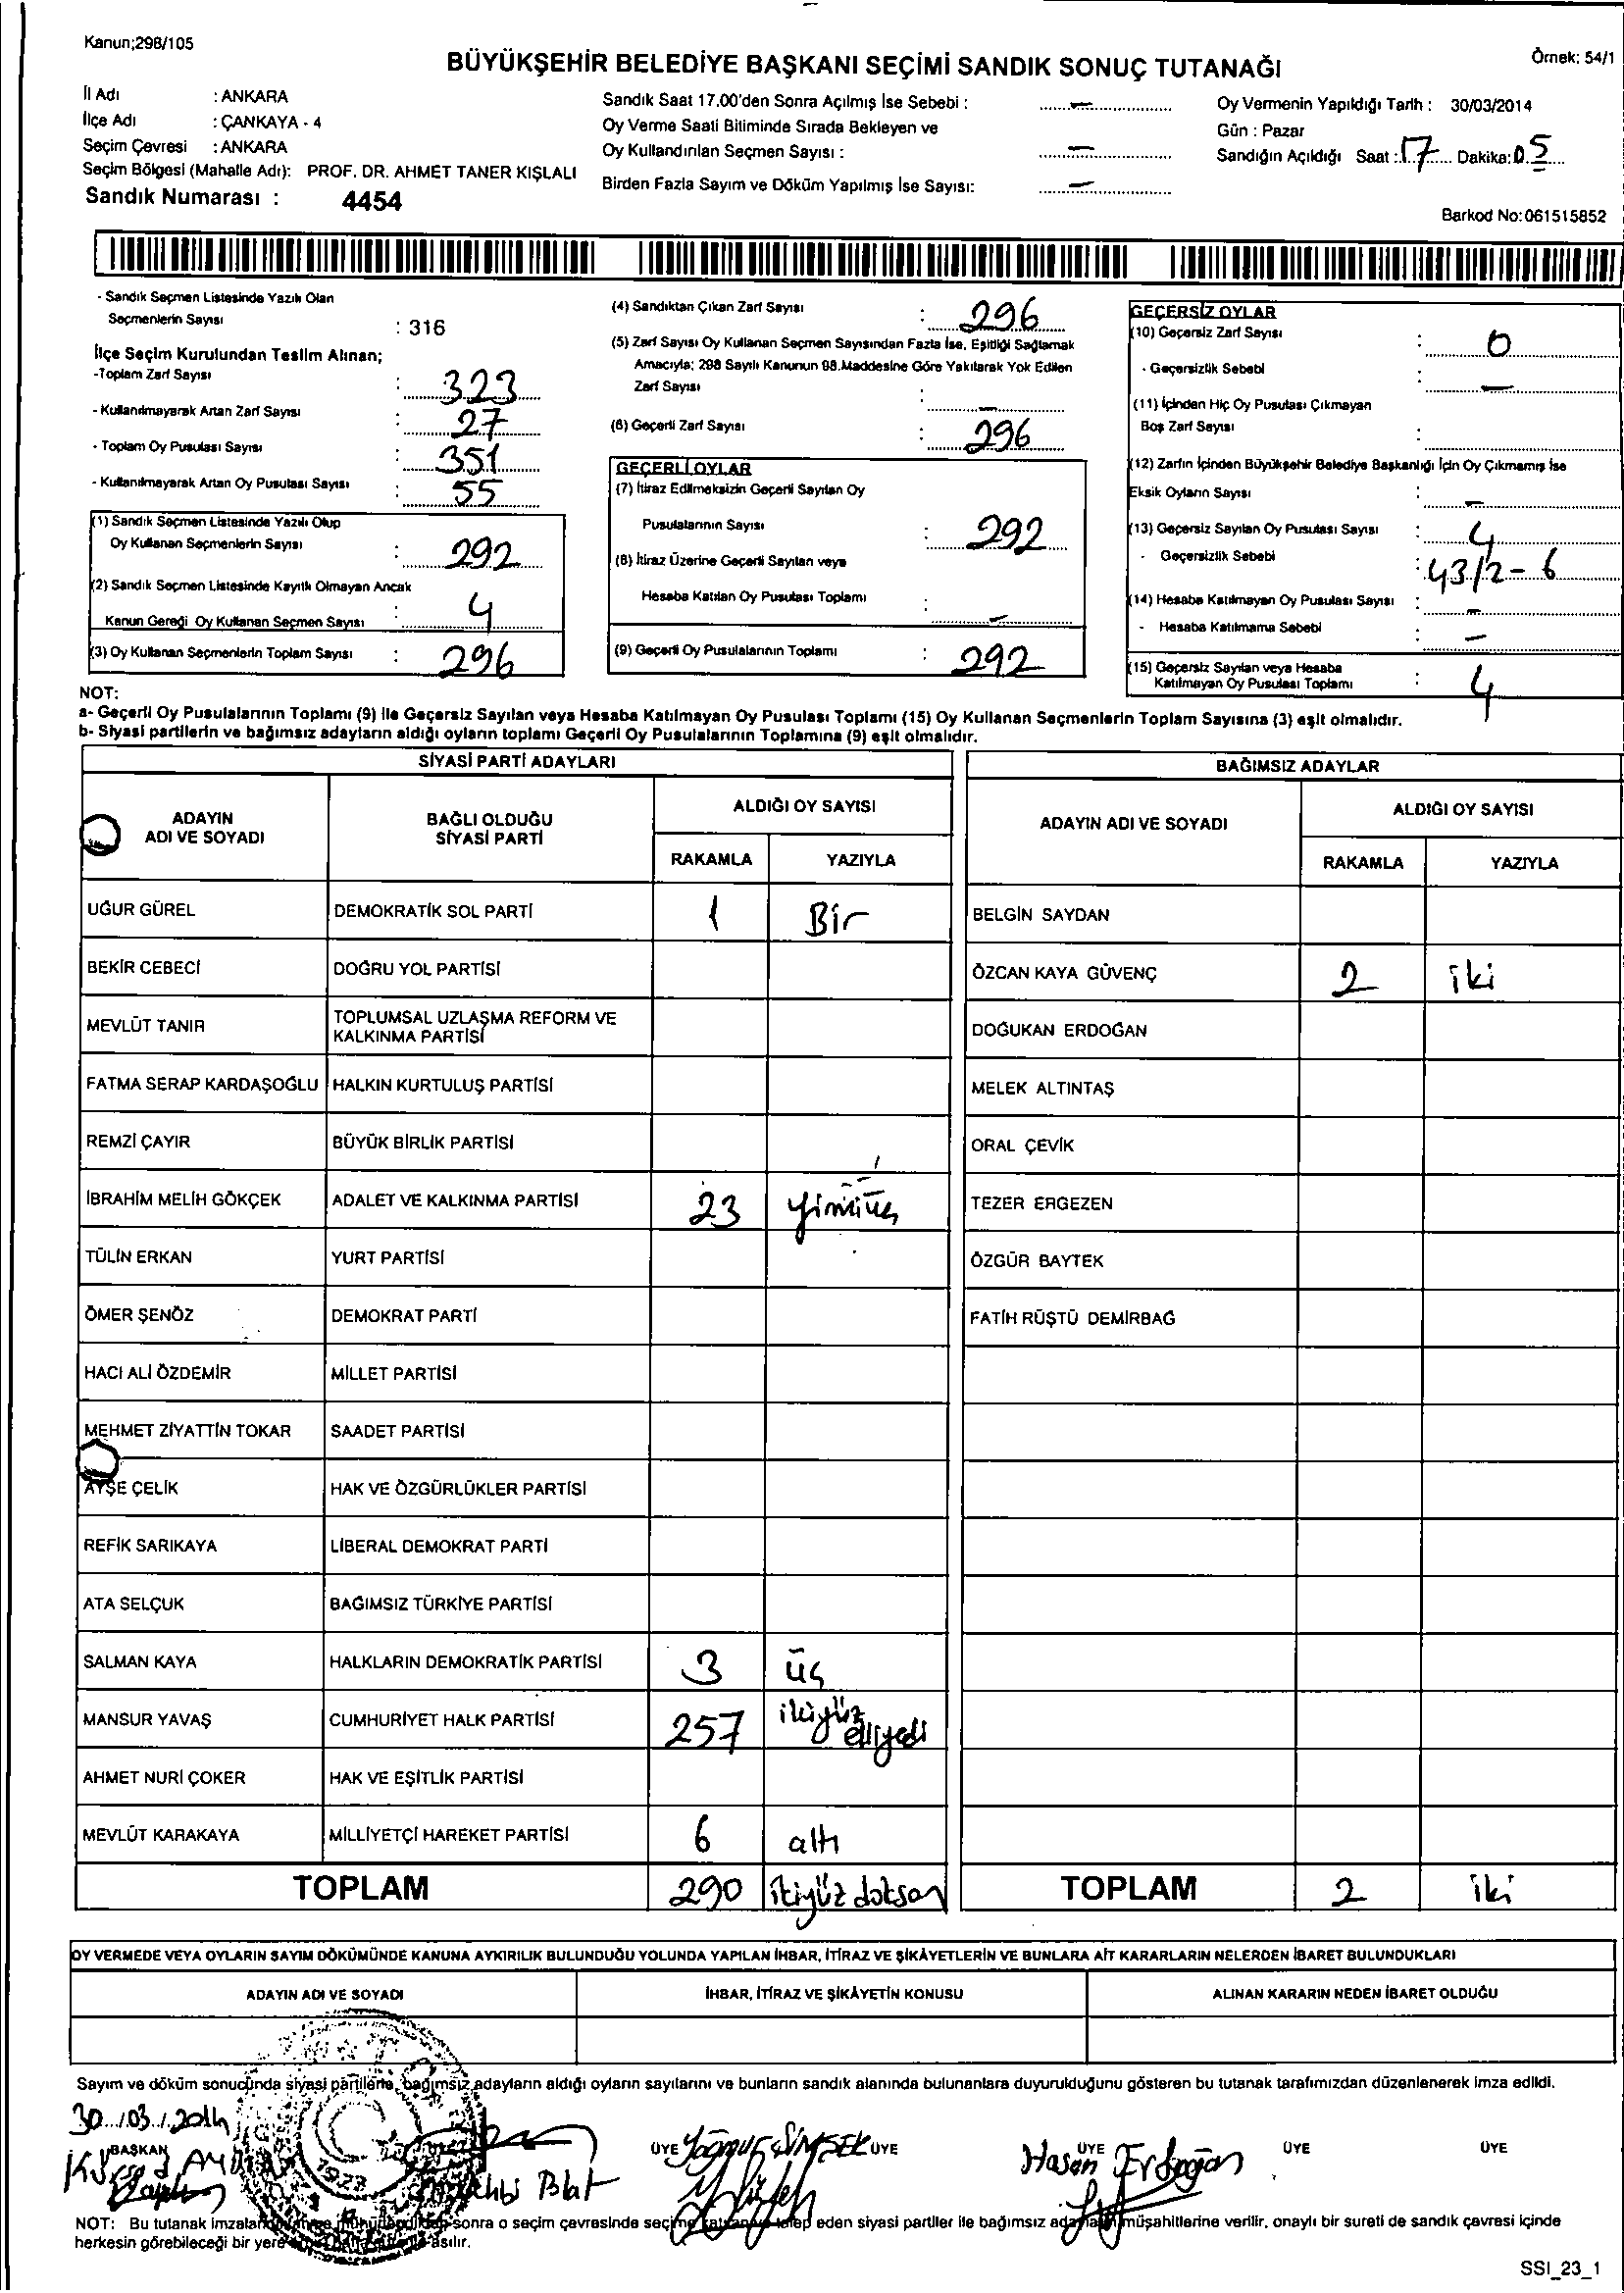 Kanun;298/105
BÜYÜKŞEHİR BELEDİYE BAŞKANI SEÇİMİ SANDIK SONUÇ TUTANAĞI
Örnek: 54/1
İl Adı : ANKARA
İlçe Adı : ÇANKAYA - 4
Seçim Çevresi : ANKARA
Seçim Bölgesi (Mahalle Adı): PROF. DR. AHMET TANER KIŞLALI
Sandık Numarası : 4454
Sandık Saat 17.00'den Sonra Açılmış İse Sebebi : –
Oy Verme Saati Bitiminde Sırada Bekleyen ve
Oy Kullandırılan Seçmen Sayısı : –
Birden Fazla Sayım ve Döküm Yapılmış İse Sayısı: –
Oy Vermenin Yapıldığı Tarih : 30/03/2014
Gün : Pazar
Sandığın Açıldığı Saat : 17 Dakika: 05
Barkod No:061515852
- Sandık Seçmen Listesinde Yazılı Olan
Seçmenlerin Sayısı : 316
İlçe Seçim Kurulundan Teslim Alınan;
-Toplam Zarf Sayısı : 323
- Kullanılmayarak Artan Zarf Sayısı : 27
- Toplam Oy Pusulası Sayısı : 351
- Kullanılmayarak Artan Oy Pusulası Sayısı : 55
(1) Sandık Seçmen Listesinde Yazılı Olup
Oy Kullanan Seçmenlerin Sayısı : 292
(2) Sandık Seçmen Listesinde Kayıtlı Olmayan Ancak
Kanun Gereği Oy Kullanan Seçmen Sayısı : 4
(3) Oy Kullanan Seçmenlerin Toplam Sayısı : 296
(4) Sandıktan Çıkan Zarf Sayısı : 296
(5) Zarf Sayısı Oy Kullanan Seçmen Sayısından Fazla İse, Eşitliği Sağlamak
Amacıyla; 298 Sayılı Kanunun 98.Maddesine Göre Yakılarak Yok Edilen
Zarf Sayısı : –
(6) Geçerli Zarf Sayısı : 296
GEÇERLİ OYLAR
(7) İtiraz Edilmeksizin Geçerli Sayılan Oy
Pusulalarının Sayısı : 292
(8) İtiraz Üzerine Geçerli Sayılan veya
Hesaba Katılan Oy Pusulası Toplamı : –
(9) Geçerli Oy Pusulalarının Toplamı : 292
GEÇERSİZ OYLAR
(10) Geçersiz Zarf Sayısı : 0
- Geçersizlik Sebebi : –
(11) İçinden Hiç Oy Pusulası Çıkmayan
Boş Zarf Sayısı :
(12) Zarfın İçinden Büyükşehir Belediye Başkanlığı İçin Oy Çıkmamış İse
Eksik Oyların Sayısı : –
(13) Geçersiz Sayılan Oy Pusulası Sayısı : 4
- Geçersizlik Sebebi : 43/2-6
(14) Hesaba Katılmayan Oy Pusulası Sayısı : –
- Hesaba Katılmama Sebebi : –
(15) Geçersiz Sayılan veya Hesaba
Katılmayan Oy Pusulası Toplamı : 4
NOT:
a- Geçerli Oy Pusulalarının Toplamı (9) ile Geçersiz Sayılan veya Hesaba Katılmayan Oy Pusulası Toplamı (15) Oy Kullanan Seçmenlerin Toplam Sayısına (3) eşit olmalıdır.
b- Siyasi partilerin ve bağımsız adayların aldığı oyların toplamı Geçerli Oy Pusulalarının Toplamına (9) eşit olmalıdır.
SİYASİ PARTİ ADAYLARI
BAĞIMSIZ ADAYLAR
ADAYIN ADI VE SOYADI
BAĞLI OLDUĞU SİYASİ PARTİ
ALDIĞI OY SAYISI
RAKAMLA YAZIYLA
ADAYIN ADI VE SOYADI
ALDIĞI OY SAYISI
RAKAMLA YAZIYLA
UĞUR GÜREL DEMOKRATİK SOL PARTİ 1 Bir BELGİN SAYDAN
BEKİR CEBECİ DOĞRU YOL PARTİSİ ÖZCAN KAYA GÜVENÇ 2 iki
MEVLÜT TANIR TOPLUMSAL UZLAŞMA REFORM VE KALKINMA PARTİSİ DOĞUKAN ERDOĞAN
FATMA SERAP KARDAŞOĞLU HALKIN KURTULUŞ PARTİSİ MELEK ALTINTAŞ
REMZİ ÇAYIR BÜYÜK BİRLİK PARTİSİ ORAL ÇEVİK
İBRAHİM MELİH GÖKÇEK ADALET VE KALKINMA PARTİSİ 23 TEZER ERGEZEN
TÜLİN ERKAN YURT PARTİSİ ÖZGÜR BAYTEK
ÖMER ŞENÖZ DEMOKRAT PARTİ FATİH RÜŞTÜ DEMİRBAĞ
HACI ALİ ÖZDEMİR MİLLET PARTİSİ
MEHMET ZİYATTİN TOKAR SAADET PARTİSİ
AYŞE ÇELİK HAK VE ÖZGÜRLÜKLER PARTİSİ
REFİK SARIKAYA LİBERAL DEMOKRAT PARTİ
ATA SELÇUK BAĞIMSIZ TÜRKİYE PARTİSİ
SALMAN KAYA HALKLARIN DEMOKRATİK PARTİSİ 3 üç
MANSUR YAVAŞ CUMHURİYET HALK PARTİSİ 257 ikiyüz elliyedi
AHMET NURİ ÇOKER HAK VE EŞİTLİK PARTİSİ
MEVLÜT KARAKAYA MİLLİYETÇİ HAREKET PARTİSİ 6 altı
TOPLAM 290 ikiyüz doksan TOPLAM 2 iki
OY VERMEDE VEYA OYLARIN SAYIM DÖKÜMÜNDE KANUNA AYKIRILIK BULUNDUĞU YOLUNDA YAPILAN İHBAR, İTİRAZ VE ŞİKÂYETLERİN VE BUNLARA AİT KARARLARIN NELERDEN İBARET BULUNDUKLARI
ADAYIN ADI VE SOYADI İHBAR, İTİRAZ VE ŞİKÂYETİN KONUSU ALINAN KARARIN NEDEN İBARET OLDUĞU
Sayım ve döküm sonucunda siyasi partilerle, bağımsız adayların aldığı oyların sayılarını ve bunların sandık alanında bulunanlara duyurulduğunu gösteren bu tutanak tarafımızdan düzenlenerek imza edildi.
30/03/2014
BAŞKAN ÜYE ÜYE ÜYE ÜYE ÜYE
Yağmur ŞİMŞEK Hasan Erdoğan
1923
NOT: Bu tutanak sonra o seçim çevresinde seçime eden siyasi partiler ile bağımsız müşahitlerine verilir, onaylı bir sureti de sandık çevresi içinde
herkesin görebileceği bir yere asılır.
SSI_23_1